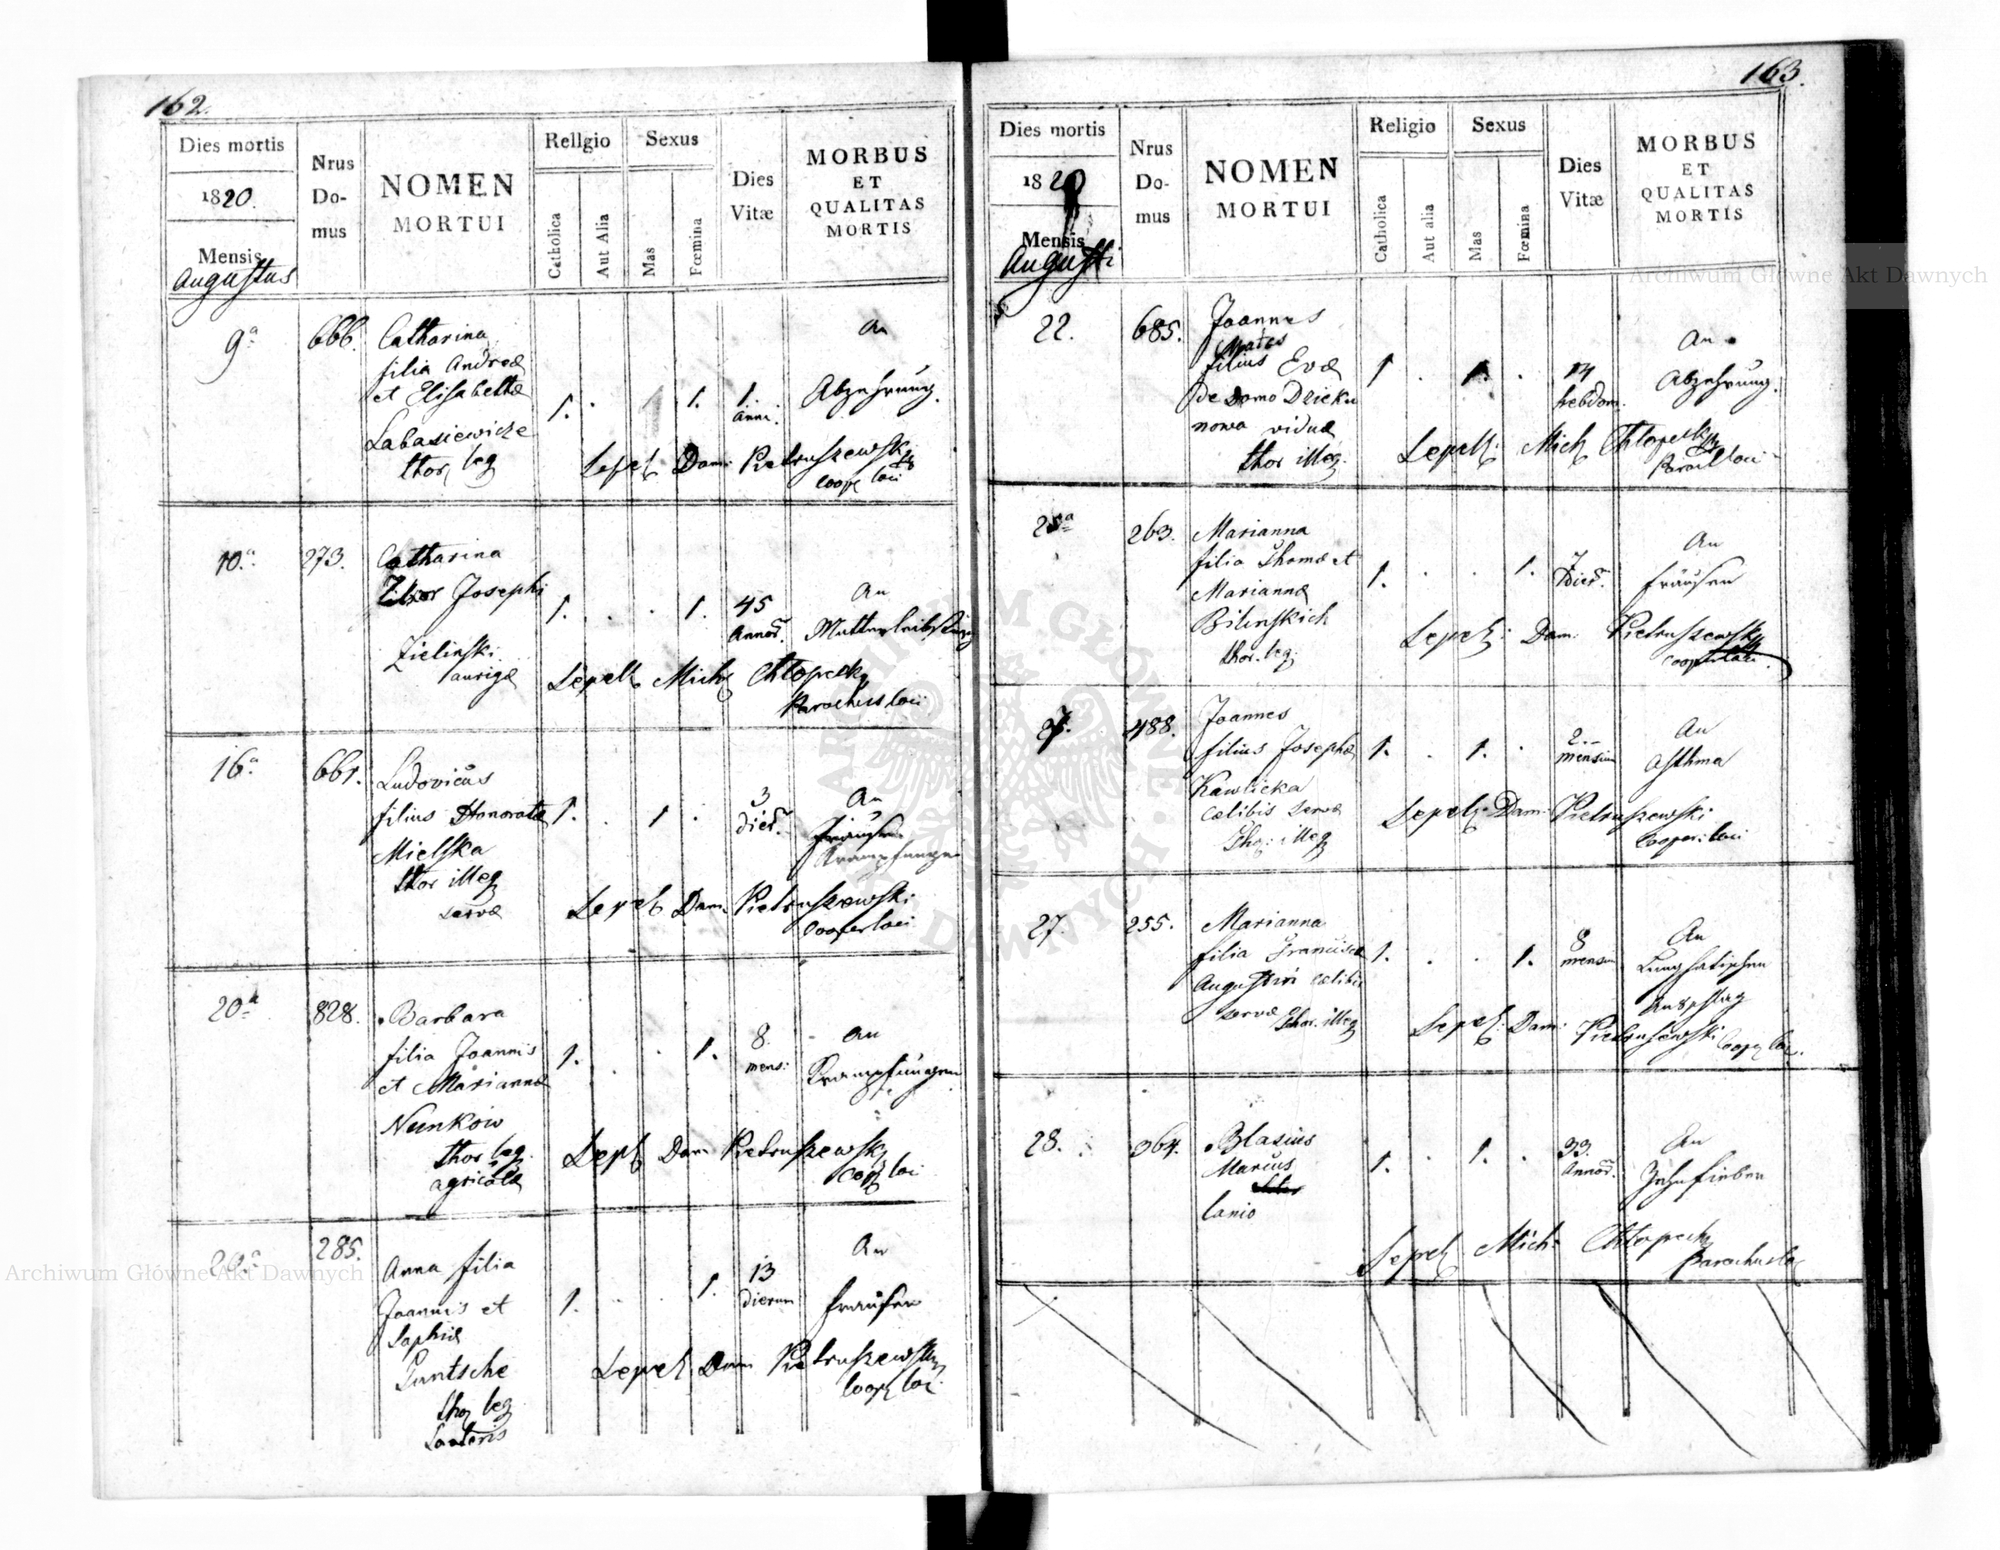 162.
Dies mortis
1820.
Mensis
Augustus
Nrus
Do-
mus
NOMEN
MORTUI
Religio
Catholica
Aut Alia
Sexus
Mas
Fœmina
Dies
Vitæ
MORBUS
ET
QUALITAS
MORTIS
9a
666.
Catharina
filia Andreæ
et Elisabethæ
Labasiewicze
thor leg
1.
1.
1.
Anni.
An
Abzehrung.
Sepel Dam: Pietruszewski
Coop loci
10.a
273.
Catharina
Josephi
Zielinski
aurigæ
1.
1.
45
Annor.
An
Sepelt Mich Chlopecki
Parochus loci
16a
661.
Ludovicus
filius Honoratæ
Mielska
thor illeg
servæ
1.
1
3
dier.
An
Sepel Dam. Pietruszewski
Cooper loci
20a
828.
Barbara
filia Joannis
et Mariannæ
Nunkow
thor leg.
agricolæ
1.
1.
8.
mens:
An
Krampfungen
Sepel Dam Pietruszewski
Coop loci
20.a
285.
Anna filia
Joannis et
Sophiæ
Puntsche
thor leg
1.
1.
13
dierum
An
fraisen
Sepel Dam Pietruszewski
Coop loci
163.
Dies mortis
1820
Mensis
Augusti
Nrus
Do-
mus
NOMEN
MORTUI
Religio
Catholica
Aut alia
Sexus
Mas
Fœmina
Dies
Vitæ
MORBUS
ET
QUALITAS
MORTIS
22.
685.
Joannes
filius Evæ
de domo Dzieku
nowa viduæ
thor illeg.
1
1.
14
hebdom.
An
Abzehrung.
Sepelt: Mich Chlopecki
Paroch loci
25a
263.
Marianna
filia Thomæ et
Mariannæ
Bilinskich
thor. leg.
1.
1.
7
dier.
An
fraisen
Sepel: Dam: Pietruszewski
Coop loci.
488.
Joannes
filius Josephæ
Kawlicka
cælibis servæ
Thor: illeg
1.
1.
2
mensium
An
Asthma
Sepel: Dam: Pietruszewski
Cooper: loci
27.
255.
Marianna
filia Franciscæ
Augustin cælibis
servæ Thor. illeg
1.
1.
8
mensium
An
Sepel: Dam: Pietruszewski Coop loci.
28.
364.
Blasius
Marcus
lanio
1.
1.
33.
Annor.
An
Zehrfieber
Sepel Mich: Chlopecki
Parochus loc
Archiwum Główne Akt Dawnych
Archiwum Główne Akt Dawnych
ARCHIWUM GŁÓWNE AKT DAWNYCH